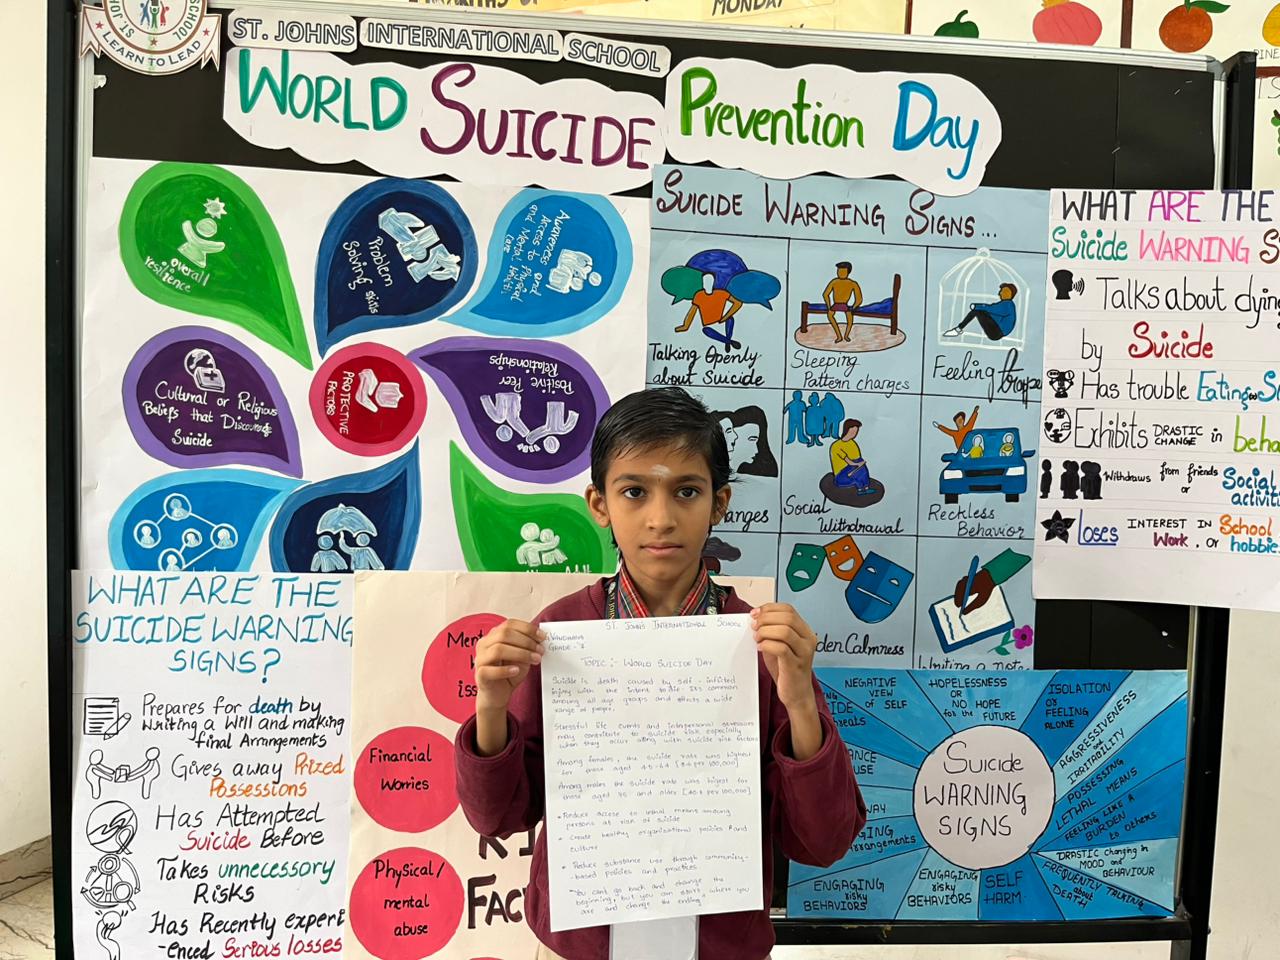 MONDAY
SCHOOL
ST. JOH
LEARN TO LEAD
ST. JOHNS INTERNATIONAL SCHOOL
WORLD SUICIDE Prevention Day
overall
resilience
Problem
Solving skills
Awareness and
access to Physical
and Mental Health
Care
Cultural or Religious
Beliefs that Discourage
Suicide
PROTECTIVE
FACTORS
Positive Peer
Relationships
SUICIDE WARNING SIGNS...
Talking Openly
about Suicide
Sleeping
Pattern changes
Feeling
anges
Social
Withdrawal
Reckless
Behavior
dden Calmness
Writing a note
WHAT ARE THE
Suicide WARNING S
Talks about dying
by Suicide
Has trouble Eating or S
Exhibits DRASTIC CHANGE in beha
Withdraws from friends
or Social
activiti
Loses INTEREST IN School
Work, or hobbie
WHAT ARE THE
SUICIDE WARNING
SIGNS?
Prepares for death by
Writing a Will and making
final Arrangements
Gives away Prized
Possessions
Has Attempted
Suicide Before
Takes unnecessary
Risks
Has Recently experi
-enced Serious losses
Ment
iss
Financial
Worries
Physical/
mental
abuse
RI
FAC
ST. JOHNS INTERNATIONAL SCHOOL
GRADE -
TOPIC :- WORLD SUICIDE DAY
Suicide is death caused by self - inflited
injury with the intent to die. It's common
among all age groups and effects a wide
range of people.
Stressful life events and interpersonal stressors
may contribute to suicide risk especially
when they occur along with suicide risk factors
Among females, the suicide rate was highest
for those aged 45-64 [8.6 per 100,000]
Among males the suicide rate was higest for
those aged 75 and older [40.4 per 100,000]
• Reduce access to lethal means among
persons at risk of suicide
• Create healthy organizational policies and
culture
• Reduce substance use through community-
based policies and practices
"You cant go back and change the
beginning, but you can start where you
are and change the ending"
Suicide
WARNING
SIGNS
NEGATIVE
VIEW
of SELF
HOPELESSNESS
OR
NO HOPE
for the FUTURE
ISOLATION
or
FEELING
ALONE
AGGRESSIVENESS
or
IRRITABILITY
POSSESSING
LETHAL MEANS
FEELING LIKE A
BURDEN
to others
DRASTIC changing in
MOOD and
BEHAVIOUR
FREQUENTLY TALKING
about
DEATH
SELF
HARM
ENGAGING
risky
BEHAVIORS
ENGAGING
risky
BEHAVIORS
WAY
GING
Arrangements
ANCE
USE
IDE
threats